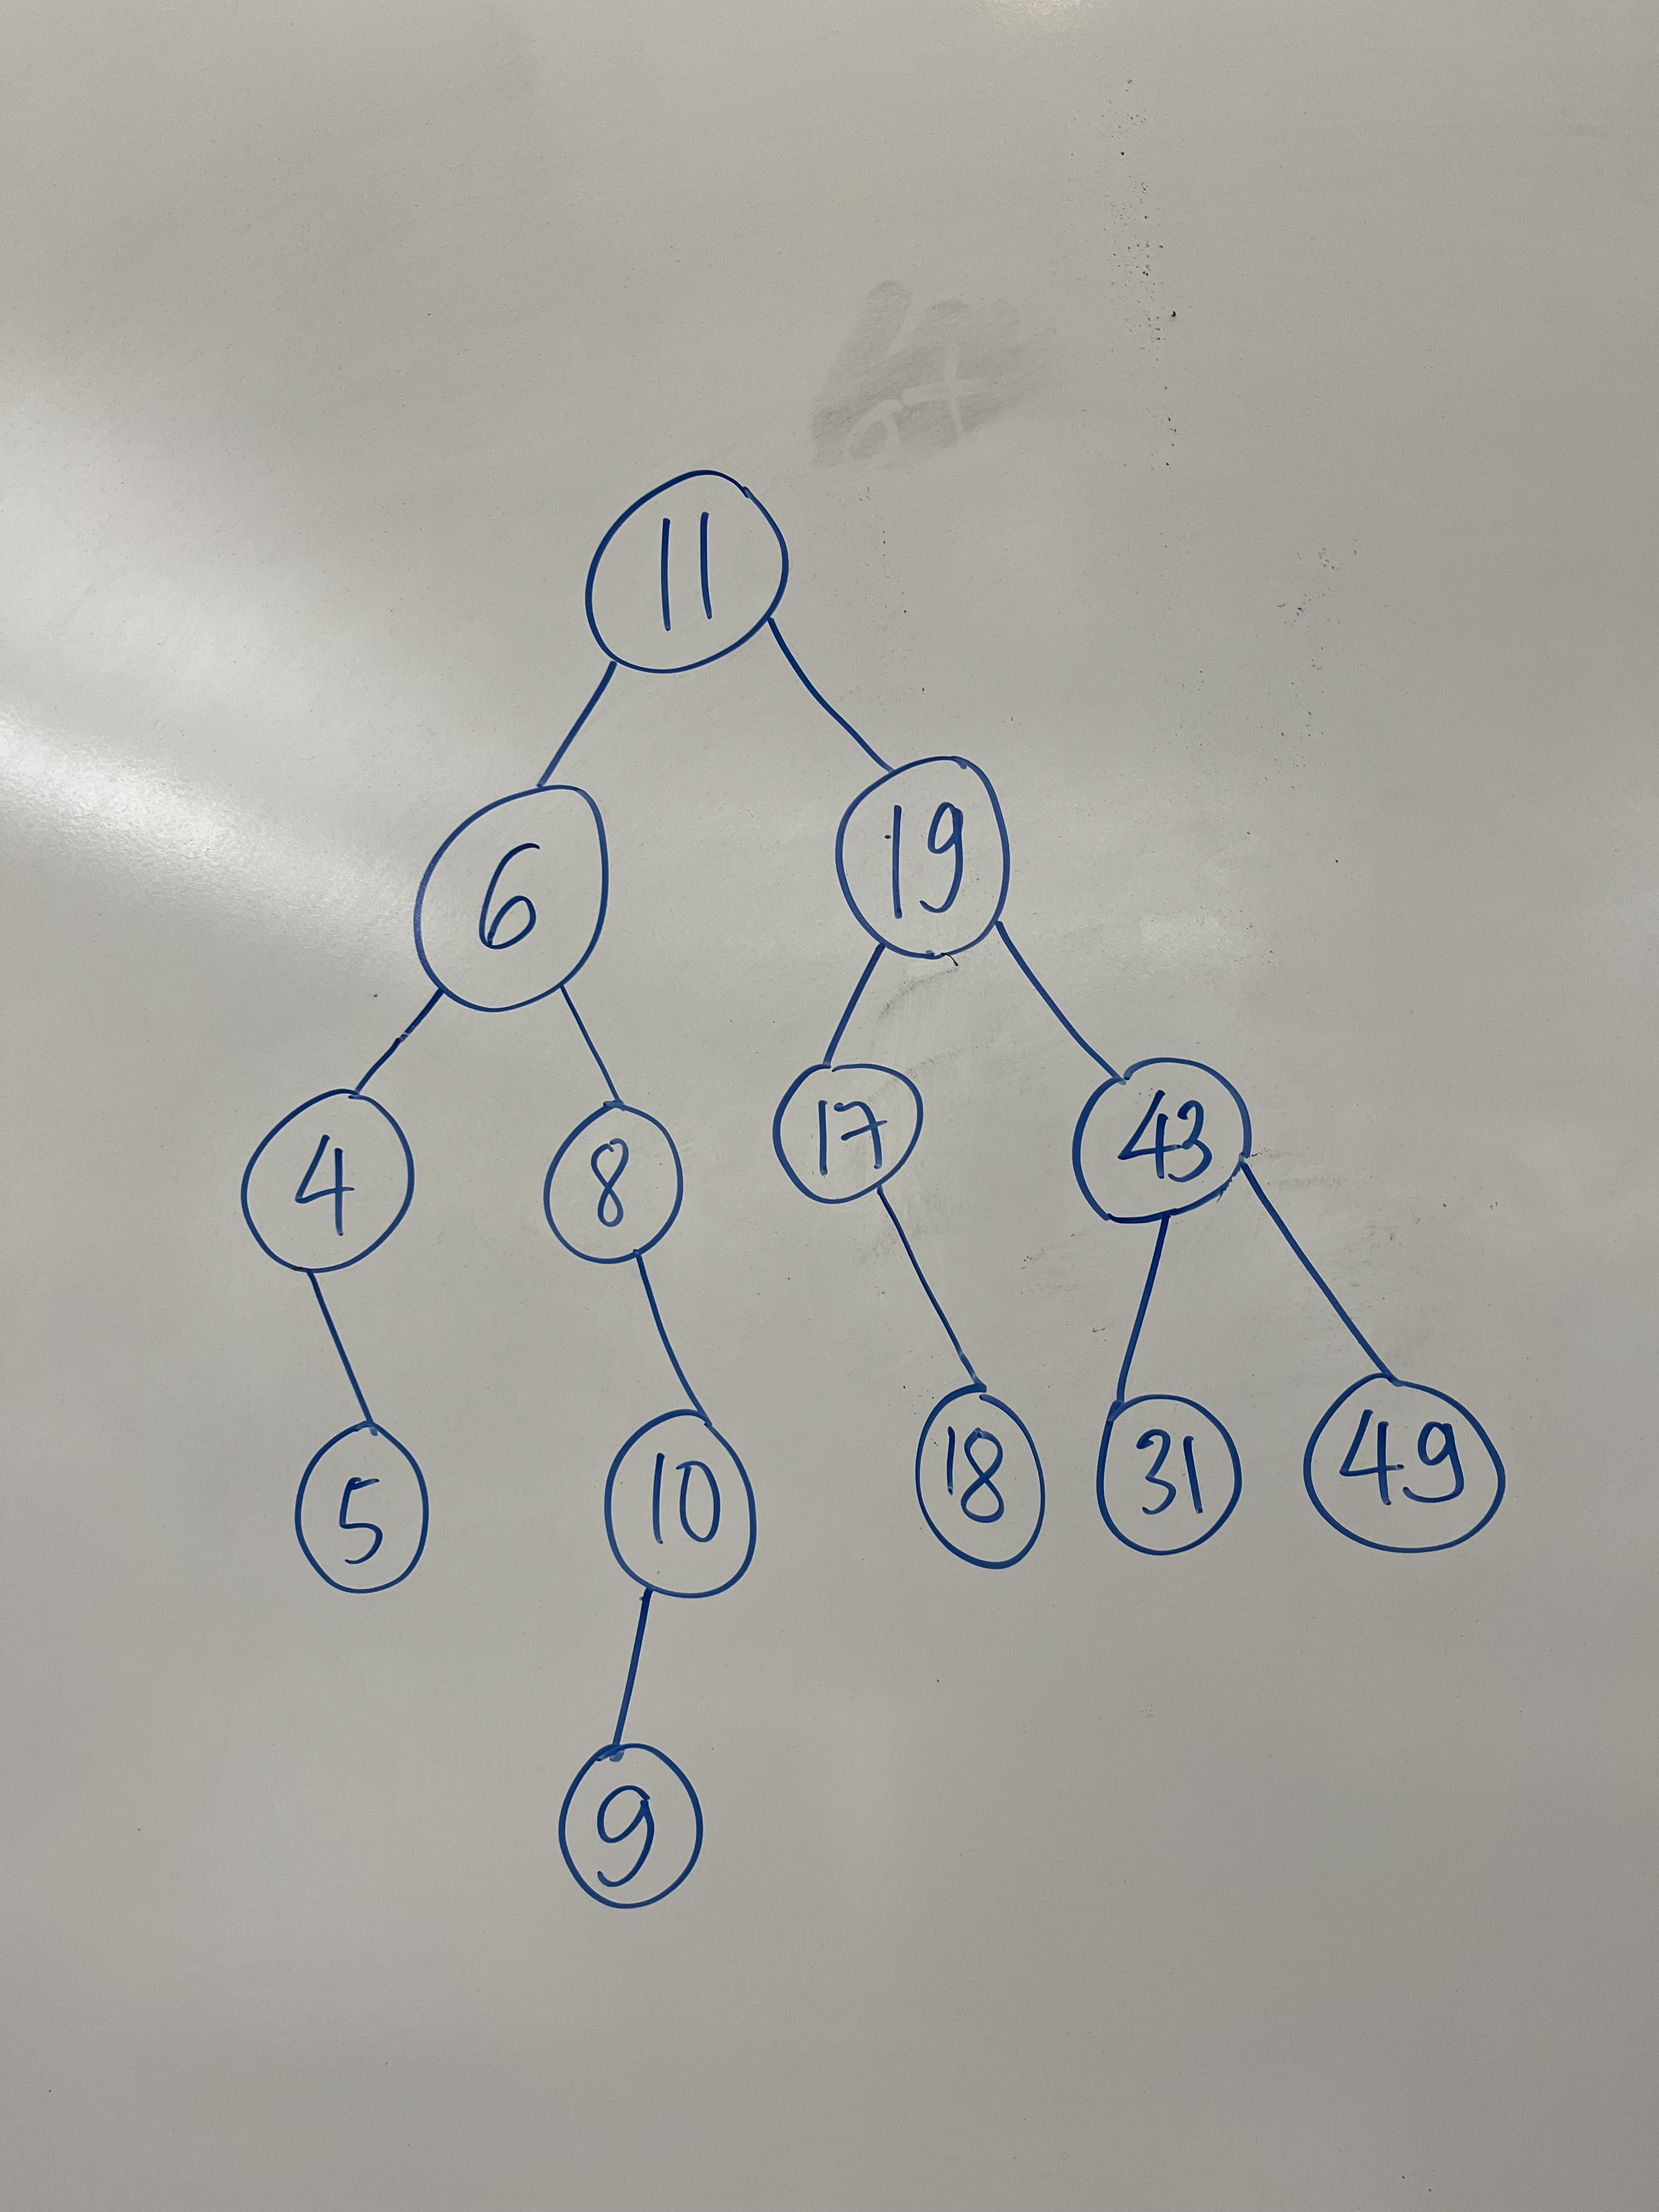 11
6 19
4 8 17 43
5 10 18 31 49
9